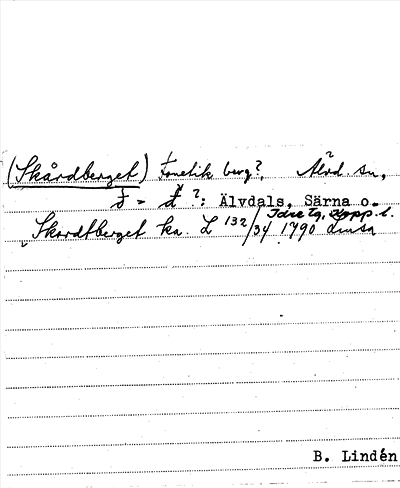 (Skårdberget) Fonetik berg?, Älvd. sn,
f = d ?: Älvdals, Särna o.
Idre tg, Kopp. l.
Skordtberget ka. L 132/34 1790 Linsa
B. Lindén